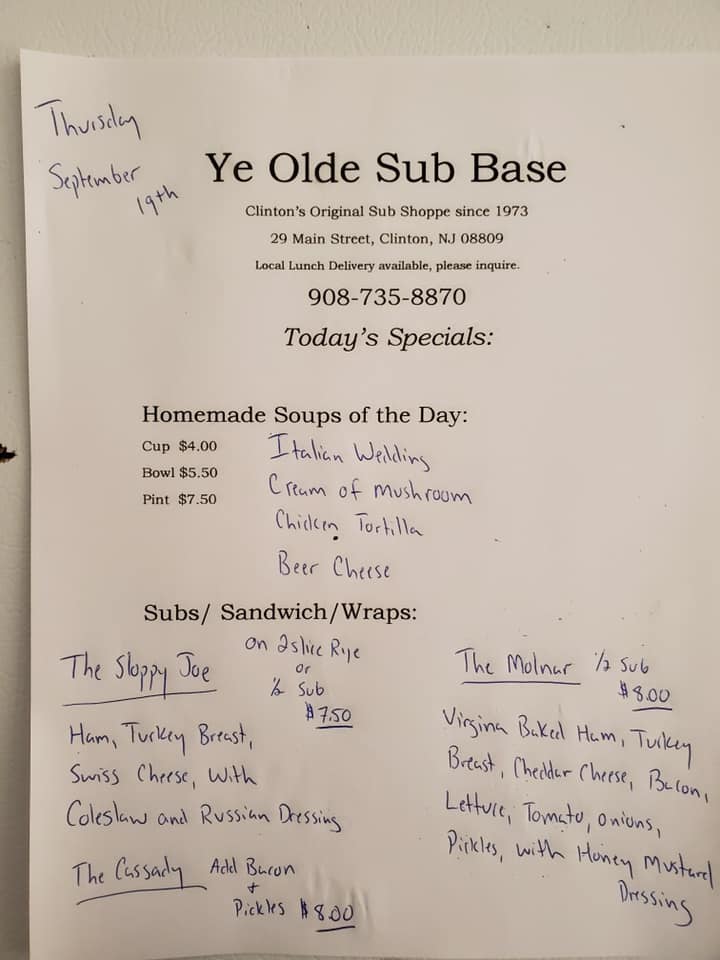 Thursday
September
19th
Ye Olde Sub Base
Clinton's Original Sub Shoppe since 1973
29 Main Street, Clinton, NJ 08809
Local Lunch Delivery available, please inquire.
908-735-8870
Today's Specials:
Homemade Soups of the Day:
Cup $4.00
Bowl $5.50
Pint $7.50
Italian Wedding
Cream of Mushroom
Chicken Tortilla
Beer Cheese
Subs/ Sandwich/Wraps:
The Sloppy Joe
on 2 slice Rye
or
1/2 Sub
$7.50
Ham, Turkey Breast,
Swiss Cheese, With
Coleslaw and Russian Dressing
The Cassady Add Bacon
+
Pickles $8.00
The Molnar 1/2 Sub
$8.00
Virgina Baked Ham, Turkey
Breast, Cheddar Cheese, Bacon,
Lettuce, Tomato, onions,
Pickles, with Honey Mustard
Dressing